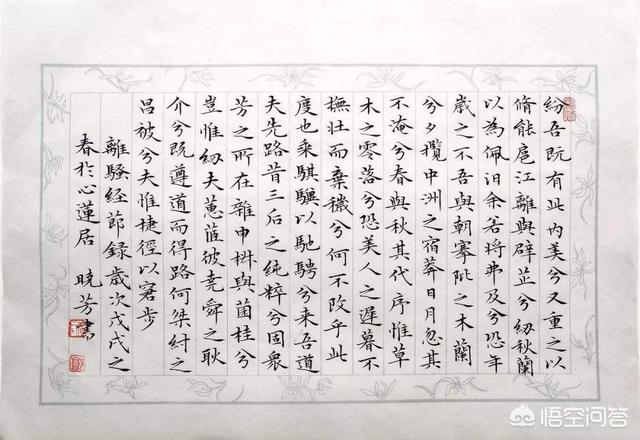 紛吾既有此內美兮又重之以
脩能扈江離與辟芷兮紉秋蘭
以為佩汨余若將弗及兮恐年
歲之不吾與朝搴阰之木蘭
兮夕攬中洲之宿莽日月忽其
不淹兮春與秋其代序惟草
木之零落兮恐美人之遲暮不
撫壯而棄穢兮何不改乎此
度也乘騏驥以馳騁兮来吾道
夫先路昔三后之純粹兮固衆
芳之所在雜申椒與菌桂兮
豈惟紉夫蕙茝彼堯舜之耿
介兮既遵道而得路何桀紂之
昌被兮夫惟捷徑以窘步
離騷経節録歲次戊戌之
春於心蓮居 曉芳書
悟空问答